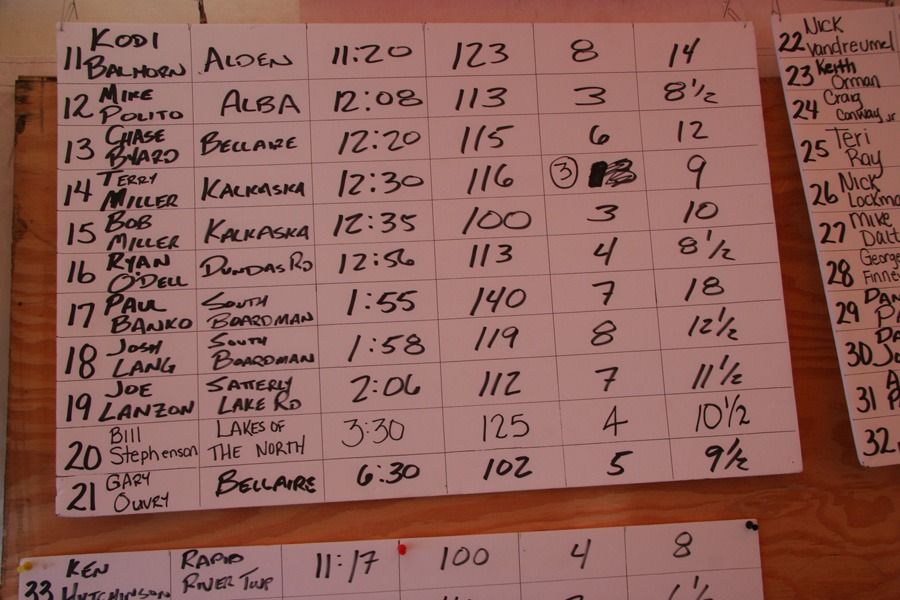 11 KODI BALHORN ALDEN 11:20 123 8 14
12 MIKE POLITO ALBA 12:08 113 3 8 1/2
13 CHASE BYARD BELLAIRE 12:20 115 6 12
14 TERRY MILLER KALKASKA 12:30 116 3 9
15 BOB MILLER KALKASKA 12:35 100 3 10
16 RYAN O'DELL DUNDAS RD 12:56 113 4 8 1/2
17 PAUL BANKO SOUTH BOARDMAN 1:55 140 7 18
18 JOSH LANG SOUTH BOARDMAN 1:58 119 8 12 1/2
19 JOE LANZON SATTERLY LAKE RD 2:06 112 7 11 1/2
20 Bill Stephenson LAKES OF THE NORTH 3:30 125 4 10 1/2
21 GARY OUVRY BELLAIRE 6:30 102 5 9 1/2
22 Nick Vandreumel
23 Keith Orman
24 Craig Conway Jr
25 Teri Ray
26 Nick
27 Mike
28 George
29
30
31
32
33 KEN HUTCHINSON RAPID RIVER TWP 11:17 100 4 8